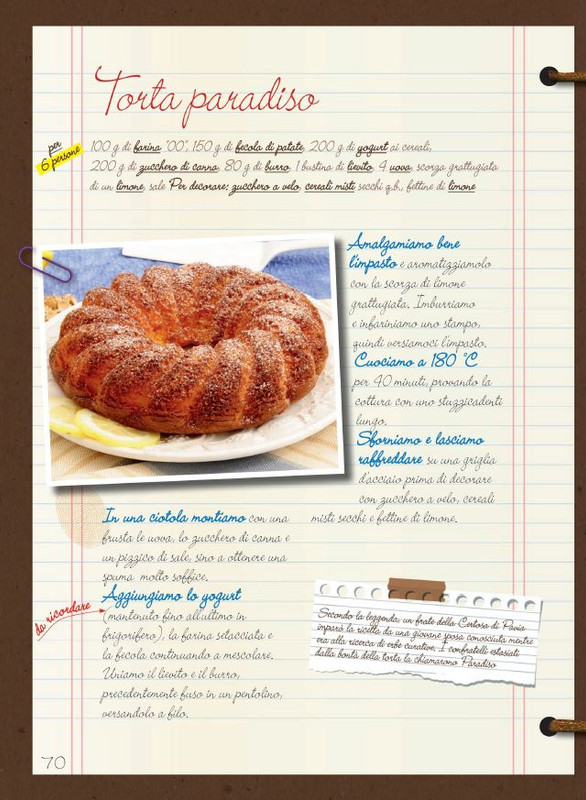 Torta paradiso
per
6 persone
100 g di farina "00", 150 g di fecola di patate, 200 g di yogurt ai cereali,
200 g di zucchero di canna, 80 g di burro, 1 bustina di lievito, 4 uova, scorza grattugiata
di un limone, sale Per decorare: zucchero a velo, cereali misti secchi q.b., fettine di limone
In una ciotola montiamo con una
frusta le uova, lo zucchero di canna e
un pizzico di sale, sino a ottenere una
spuma molto soffice.
Aggiungiamo lo yogurt
(mantenuto fino all'ultimo in
frigorifero), la farina setacciata e
la fecola continuando a mescolare.
Uniamo il lievito e il burro,
precedentemente fuso in un pentolino,
versandolo a filo.
Amalgamiamo bene
l'impasto e aromatizziamolo
con la scorza di limone
grattugiata. Imburriamo
e infariniamo uno stampo,
quindi versiamoci l'impasto.
Cuociamo a 180 °C
per 40 minuti, provando la
cottura con uno stuzzicadenti
lungo.
Sforniamo e lasciamo
raffreddare su una griglia
d'acciaio prima di decorare
con zucchero a velo, cereali
misti secchi e fettine di limone.
da ricordare
Secondo la leggenda, un frate della Certosa di Pavia
imparò la ricetta da una giovane sposa conosciuta mentre
era alla ricerca di erbe curative. I confratelli estasiati
dalla bontà della torta la chiamarono Paradiso
70